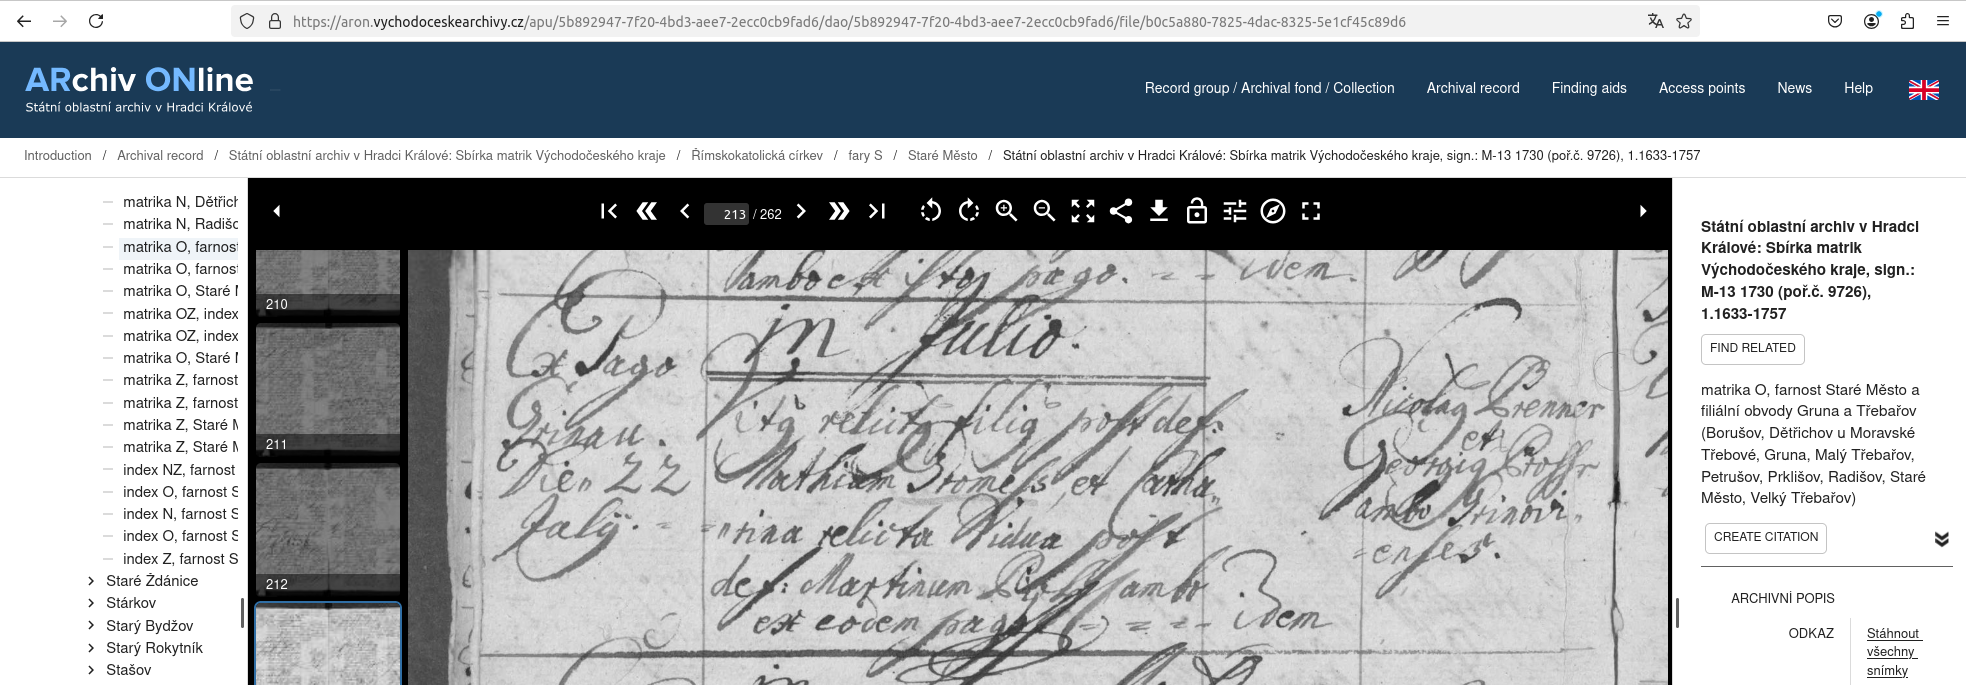 https://aron.vychodoceskearchivy.cz/apu/5b892947-7f20-4bd3-aee7-2ecc0cb9fad6/dao/5b892947-7f20-4bd3-aee7-2ecc0cb9fad6/file/b0c5a880-7825-4dac-8325-5e1cf45c89d6
ARchiv ONline
Státní oblastní archiv v Hradci Králové
Record group / Archival fond / Collection
Archival record
Finding aids
Access points
News
Help
Introduction / Archival record / Státní oblastní archiv v Hradci Králové: Sbírka matrik Východočeského kraje / Římskokatolická církev / fary S / Staré Město / Státní oblastní archiv v Hradci Králové: Sbírka matrik Východočeského kraje, sign.: M-13 1730 (poř.č. 9726), 1.1633-1757
matrika N, Dětřich
matrika N, Radišo
matrika O, farnost
matrika O, farnos
matrika O, Staré M
matrika OZ, index
matrika OZ, index
matrika O, Staré M
matrika Z, farnost
matrika Z, farnost
matrika Z, Staré M
matrika Z, Staré M
index NZ, farnost
index O, farnost S
index N, farnost S
index O, farnost S
index Z, farnost S
Staré Ždánice
Stárkov
Starý Bydžov
Starý Rokytník
Stašov
213 / 262
210
211
212
ambo ex isto pago. = = idem.
in Julio.
Ex Pago
Grinau.
Die 22
Julÿ. =
relicta post def:
Mathiam et Catha
rina relicta Vidua post
def: Martinum ambo
ex eodem pago = = = Idem
Nicolag Prenner
et
Georgig
ambo Grinovi
enses.
Státní oblastní archiv v Hradci
Králové: Sbírka matrik
Východočeského kraje, sign.:
M-13 1730 (poř.č. 9726),
1.1633-1757
FIND RELATED
matrika O, farnost Staré Město a
filiální obvody Gruna a Třebařov
(Borušov, Dětřichov u Moravské
Třebové, Gruna, Malý Třebařov,
Petrušov, Prklišov, Radišov, Staré
Město, Velký Třebařov)
CREATE CITATION
ARCHIVNÍ POPIS
ODKAZ
Stáhnout
všechny
snímky